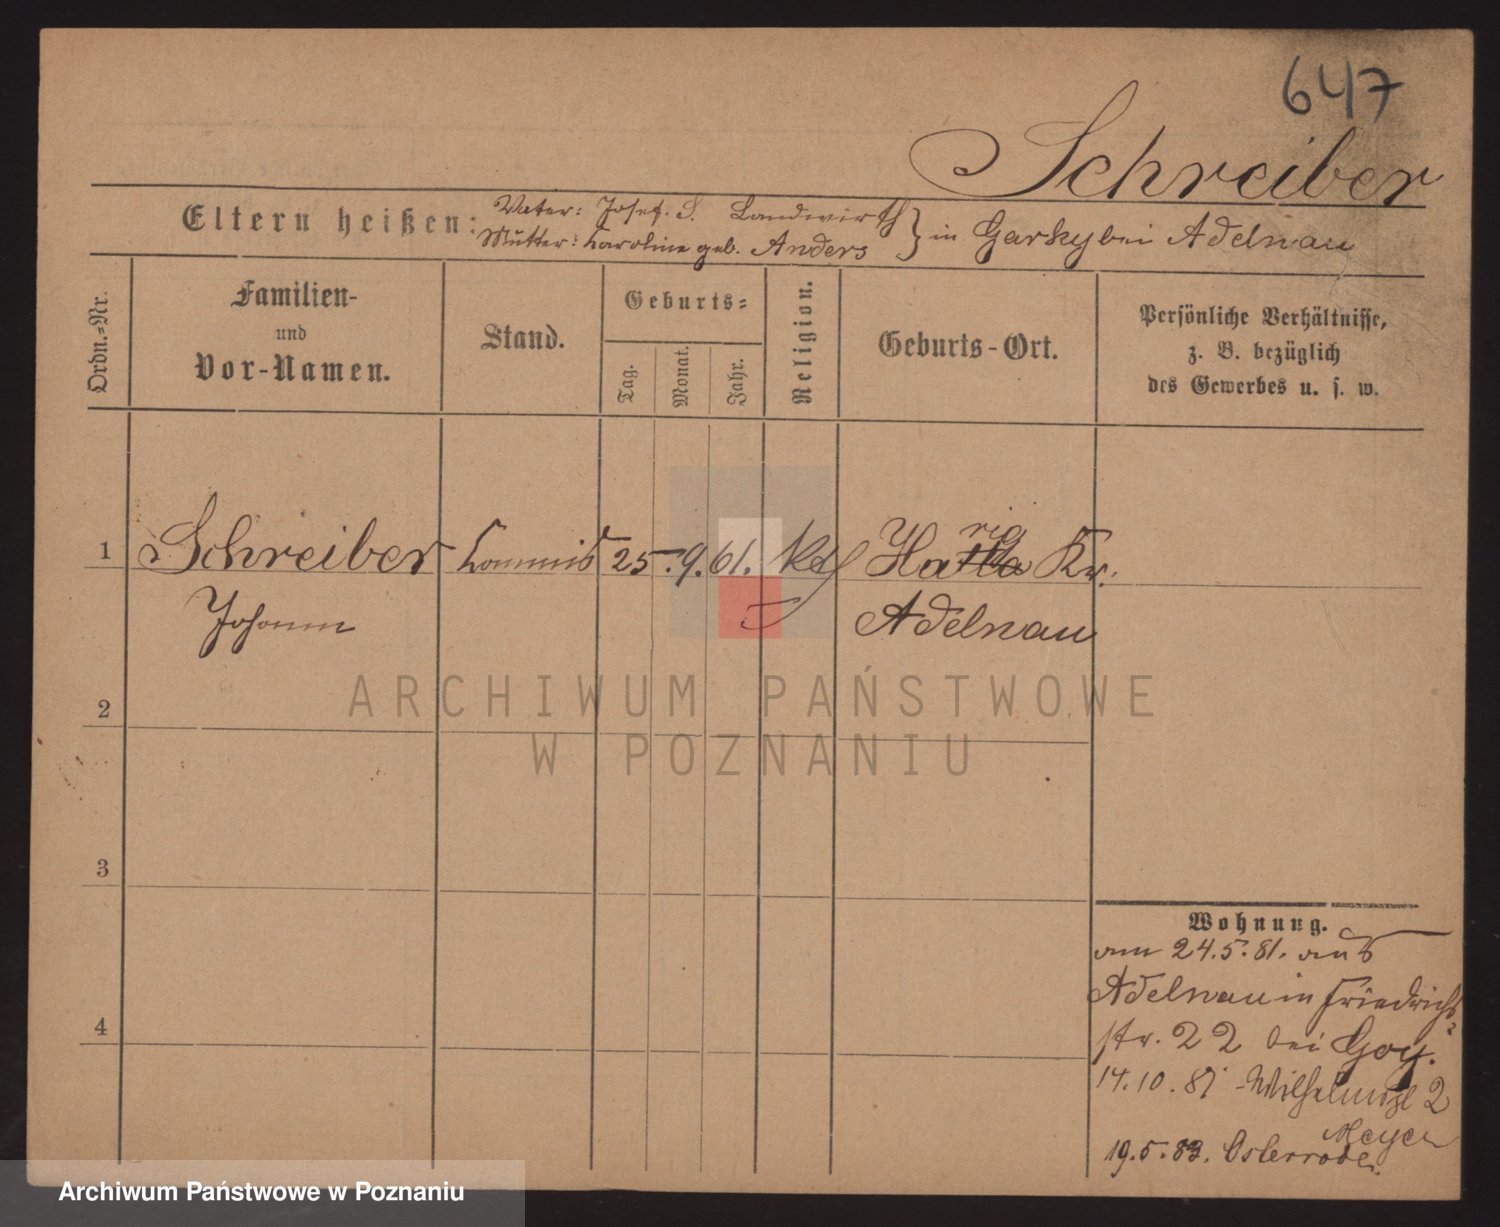 647
Schreiber
Eltern heißen: Vater: Josef. S. Landwirth
Mutter: Karoline geb. Anders } in Garky bei Adelnau
Ordn.-Nr.
Familien-
und
Vor-Namen.
Stand.
Geburts-
Tag.
Monat.
Jahr.
Religion.
Geburts-Ort.
Persönliche Verhältnisse,
z. B. bezüglich
des Gewerbes u. s. w.
1 Schreiber Commis 25. 9. 61. kth Ha rig Kr.
Johann Adelnau
2
3
4
Wohnung.
am 24.5.81. aus
Adelnau in Friedrichs-
str. 22 bei Goy.
14.10.81 Wilhelmspl 2
Meyer
19.5.83. Osterrode.
ARCHIWUM PAŃSTWOWE
W POZNANIU
Archiwum Państwowe w Poznaniu